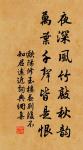 夜深風竹敲秋韻
萬葉千聲皆是恨
歐陽修玉樓春別後不
知君遠近詞典網集